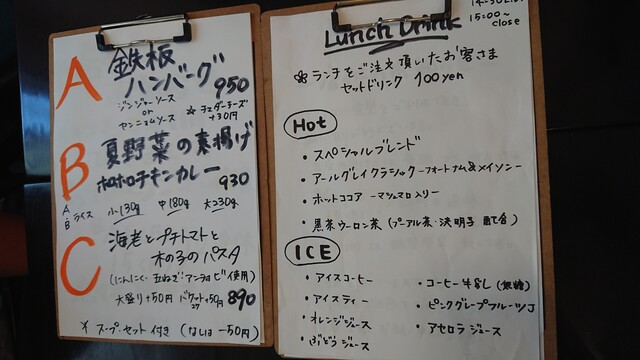 A 鉄板
ハンバーグ 950
ジンジャーソース
or
※チェダーチーズ
+30円
B 夏野菜の素揚げ
ホロホロチキンカレー 930
A、B ライス 小130g 中180g 大230g
C 海老とプチトマトと
木の子のパスタ
(にんにく・玉ねぎ・アンチョビ使用)
大盛り+50円 バケット+50円 890
スープ・セット付き (なしは -50円)
Lunch Drink
15:00~
close
ランチをご注文頂いたお客さま
セットドリンク 100yen
Hot
・スペシャルブレンド
・アールグレイクラシック ーフォートナム&メイソンー
・ホットココア ーマシュマロ入りー
・黒茶ウーロン茶 (プーアル茶・決明子 配合)
ICE
・アイスコーヒー
・アイスティー
・オレンジジュース
・ぶどうジュース
・コーヒー牛乳 (無糖)
・ピンクグレープフルーツJ
・アセロラジュース